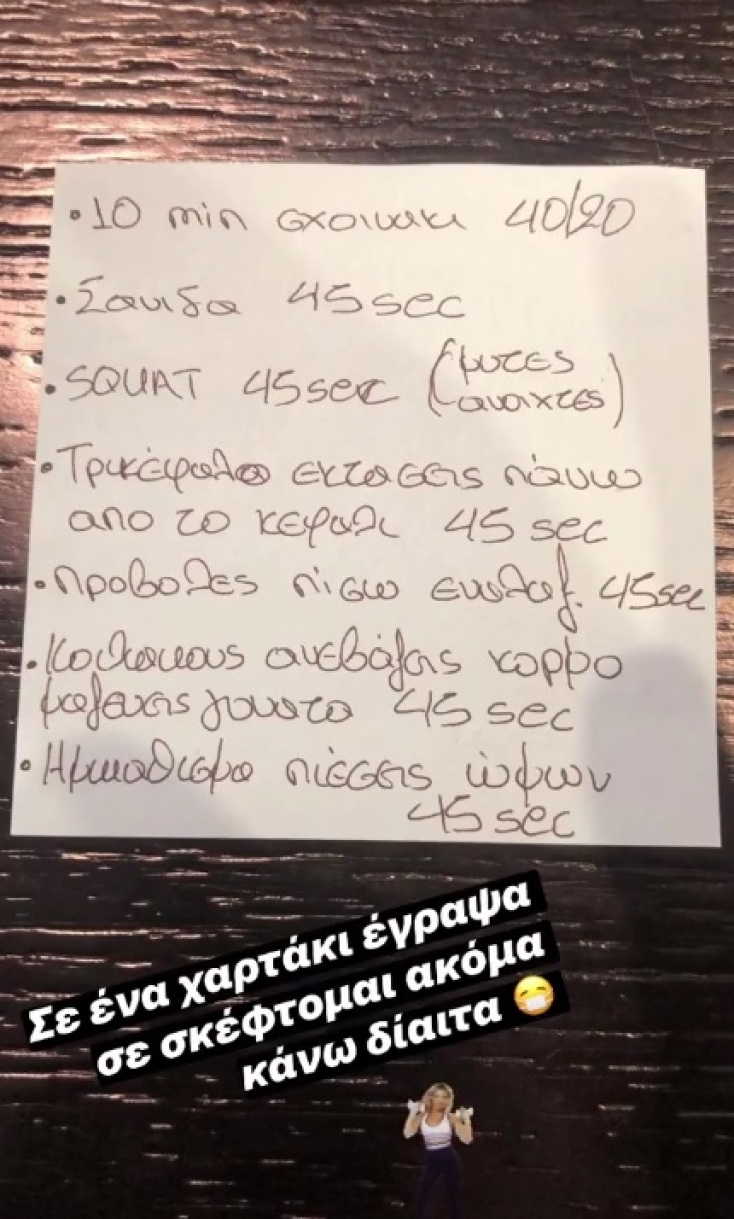 •10 min σχοινακι 40/20
•Σανιδα 45sec
•SQUAT 45sec (μυτες ανοιχτες)
•Τρικέφαλα εκτασεις πάνω
απο το κεφαλι 45 sec
•προβολες πισω εναλαξ. 45sec
• ανεβάζεις κορμο
μαζευεις γονατο 45 sec
•Ημικαθισμα πιέσεις ώμων
45 sec
Σε ένα χαρτάκι έγραψα
σε σκέφτομαι ακόμα
κάνω δίαιτα 😷